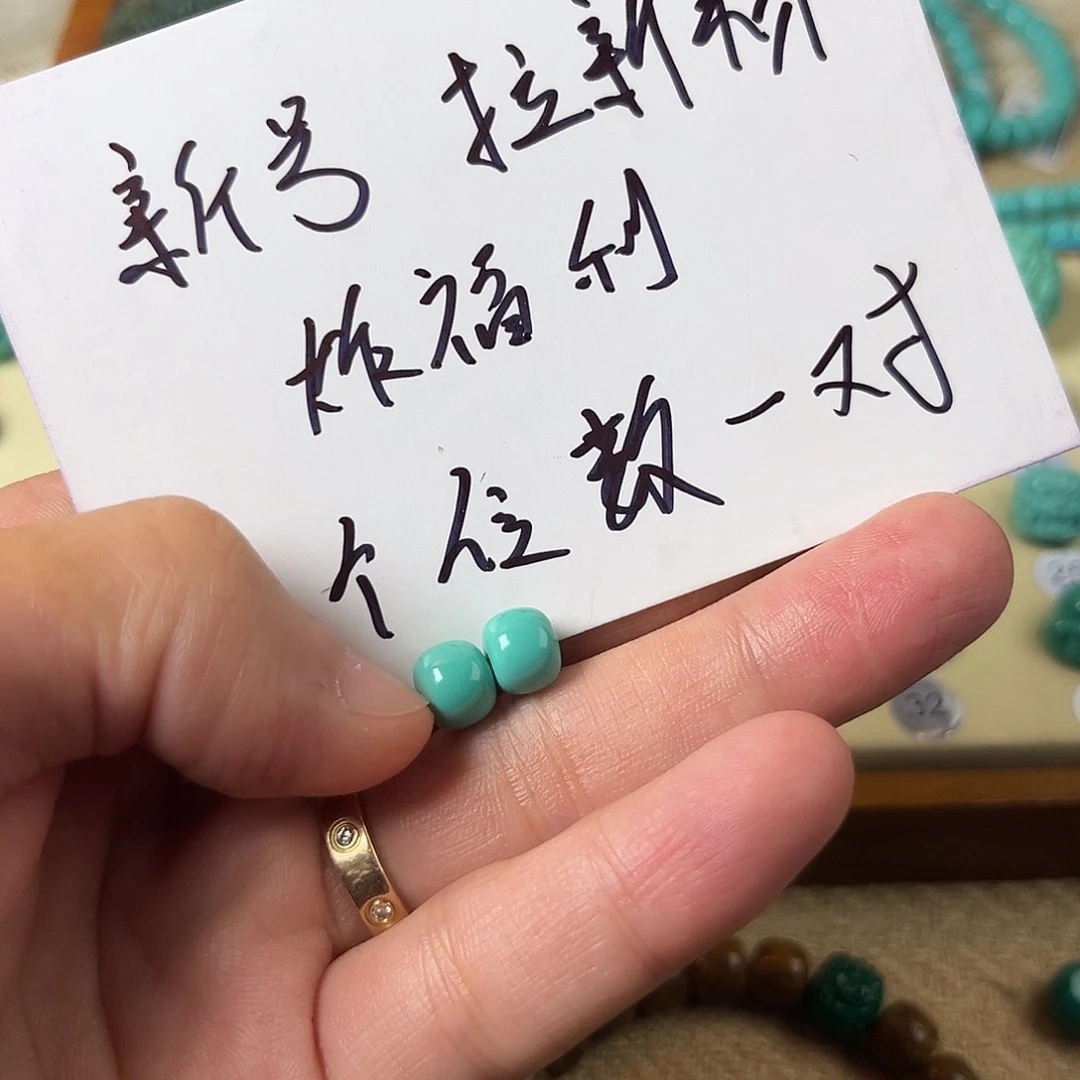 新号 拉新粉
炸福利
个位数一对
32